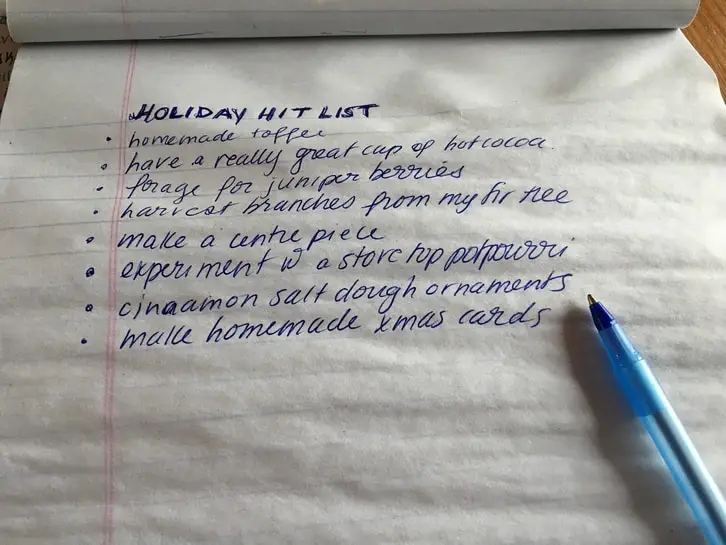 HOLIDAY HIT LIST
• homemade toffee
• have a really great cup of hot cocoa.
• forage for juniper berries
• harvest branches from my fir tree
• make a centre piece
• experiment w a stove top potpourri
• cinnamon salt dough ornaments
• make homemade xmas cards